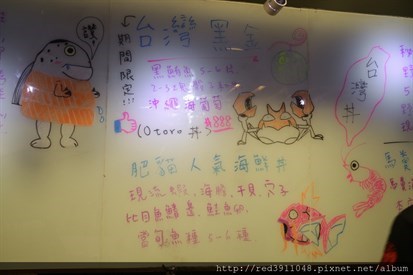 讚
期間限定!!!
台灣黑金
黑鮪魚 5-6
沖繩海葡萄
(Otoro丼)
台灣丼
肥貓人氣海鮮丼
現流大蝦、海膽、干貝、穴子
比目魚鰭邊、鮭魚卵、
當旬魚種 5-6種
http://red3911048.pixnet.net/album